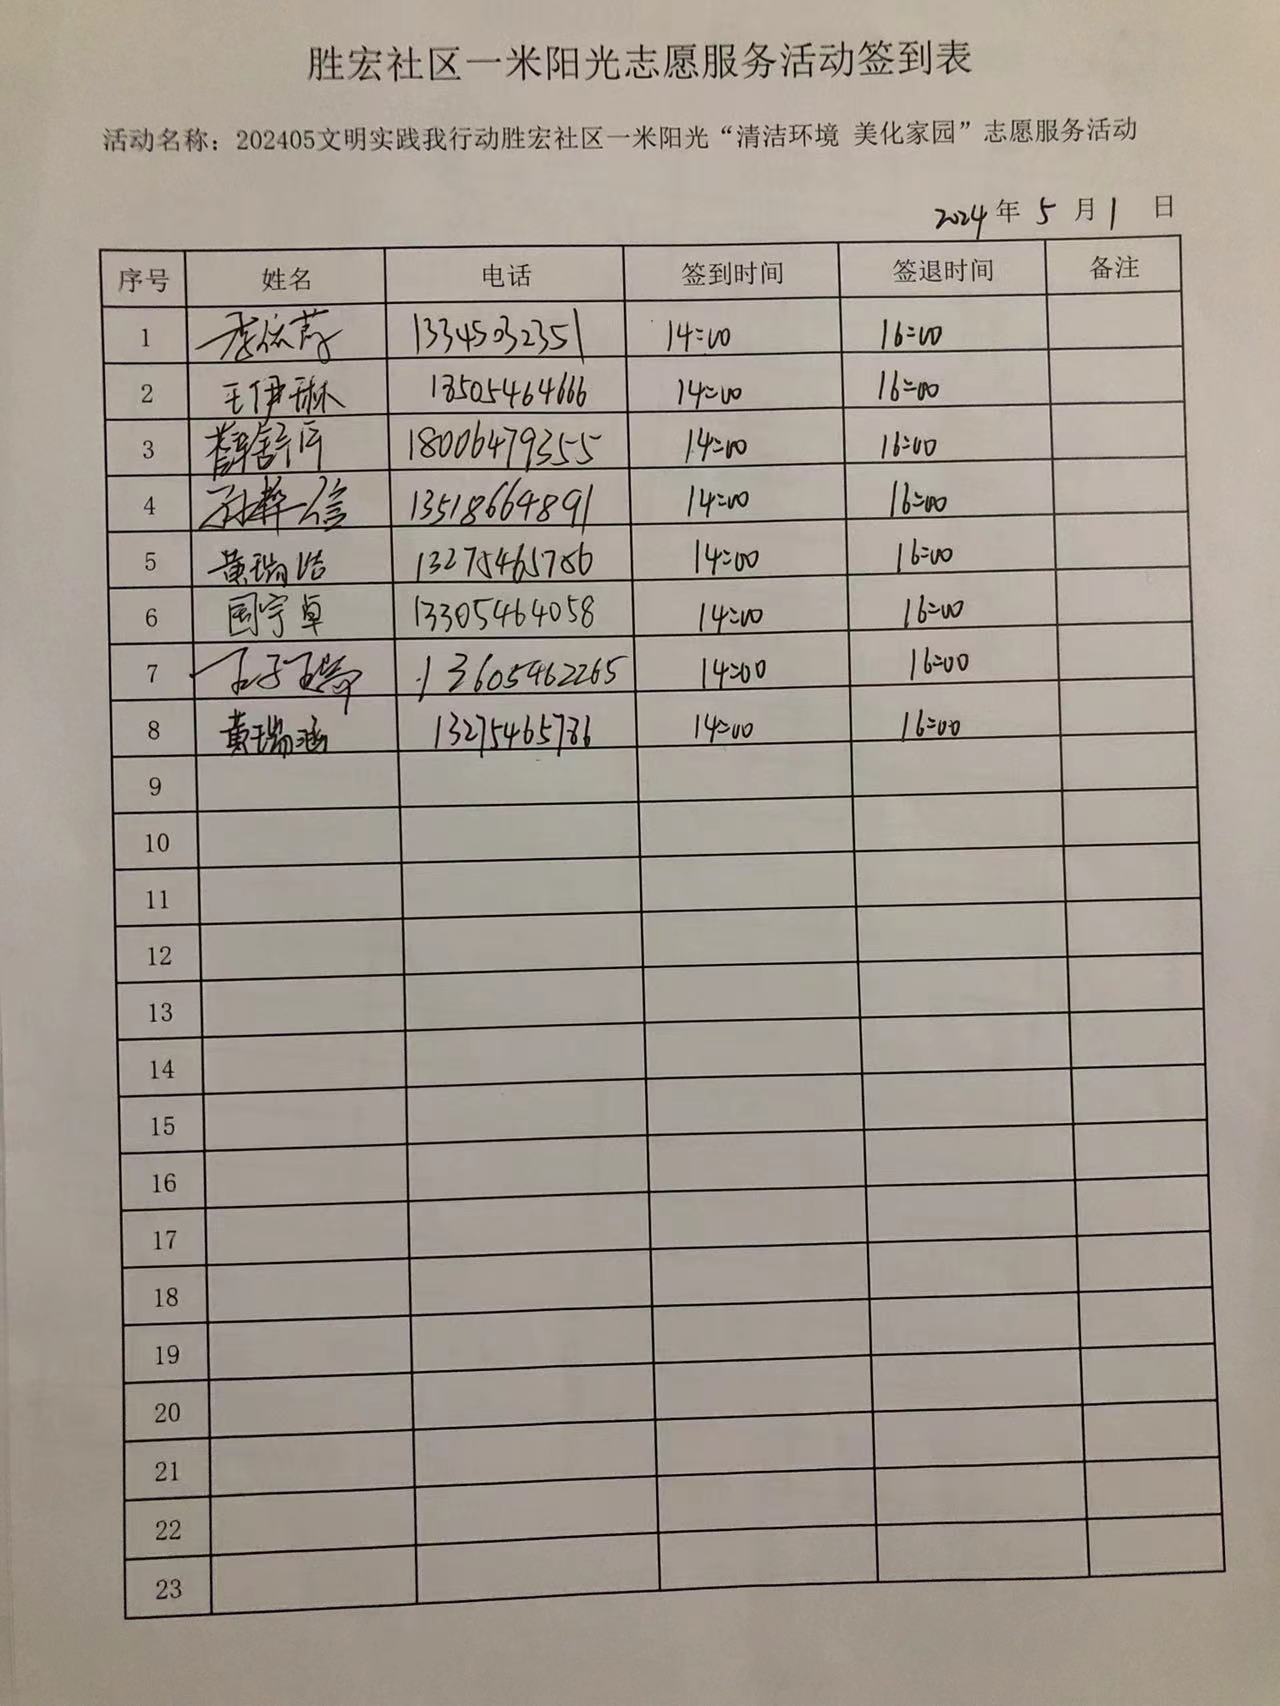 胜宏社区一米阳光志愿服务活动签到表
活动名称：202405文明实践我行动胜宏社区一米阳光“清洁环境 美化家园”志愿服务活动
2024年 5 月 1 日
序号 姓名 电话 签到时间 签退时间 备注
1 李依 13345032351 14:00 16:00
2 王伊琳 13505464666 14:00 16:00
3 18006479355 14:00 16:00
4 孙 13518664891 14:00 16:00
5 黄瑞浩 13275465786 14:00 16:00
6 国宇卓 13305464058 14:00 16:00
7 13605462265 14:00 16:00
8 黄瑞涵 13275465786 14:00 16:00
9
10
11
12
13
14
15
16
17
18
19
20
21
22
23